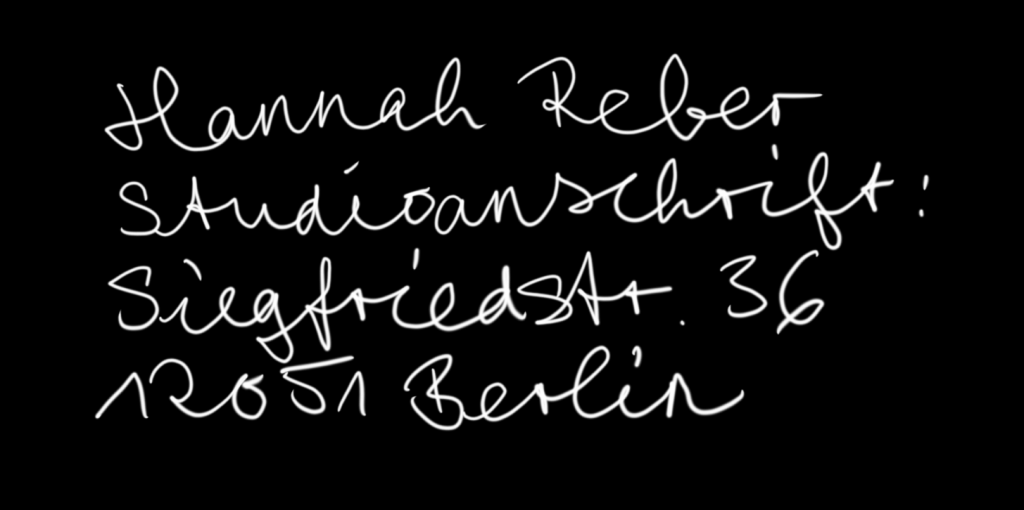 Hannah Reber
Studioanschrift:
Siegfriedstr. 36
12051 Berlin